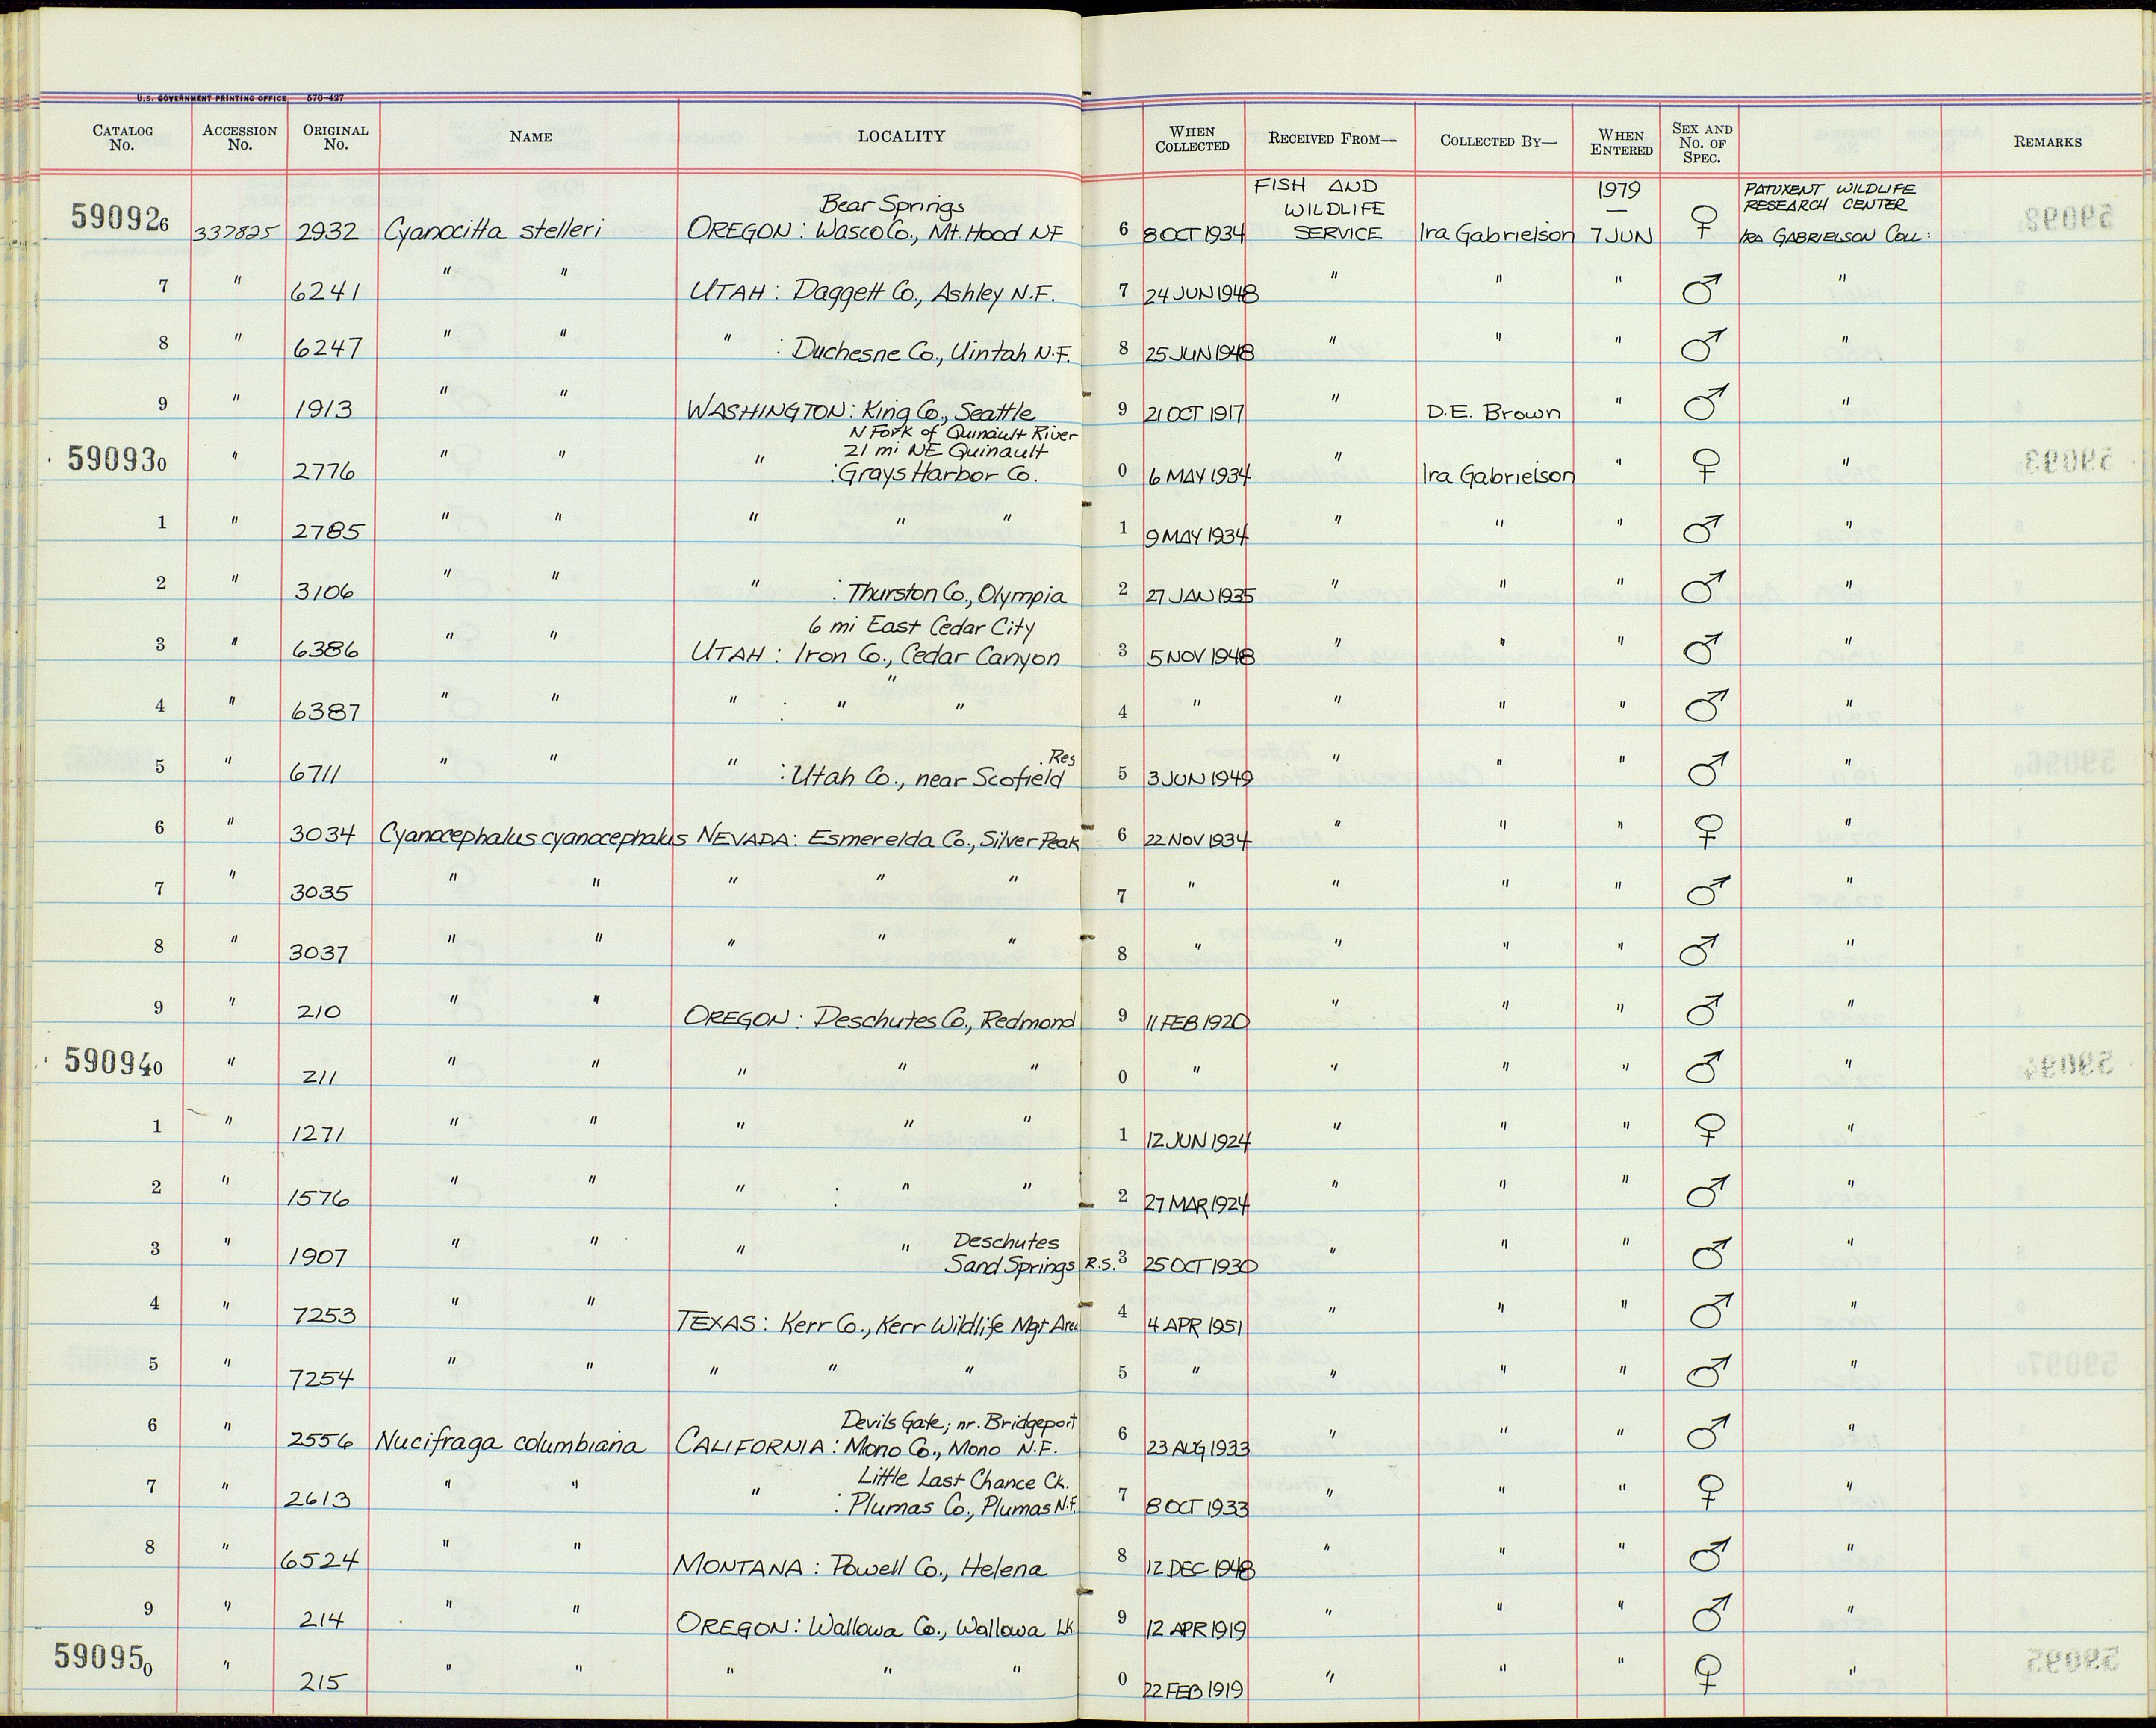 U.S. GOVERNMENT PRINTING OFFICE 570-427
CATALOG No. ACCESSION No. ORIGINAL No. NAME LOCALITY WHEN COLLECTED RECEIVED FROM— COLLECTED BY— WHEN ENTERED SEX AND No. OF SPEC. REMARKS
FISH AND WILDLIFE SERVICE 1979 — 7 JUN PATUXENT WILDLIFE RESEARCH CENTER
Bear Springs
590926 337825 2932 Cyanocitta stelleri OREGON: Wasco Co., Mt. Hood NF 6 8 OCT 1934 Ira Gabrielson ♀ IRA GABRIELSON COLL:
7 " 6241 " " UTAH: Daggett Co., Ashley N.F. 7 24 JUN 1948 " " " ♂ "
8 " 6247 " " " : Duchesne Co., Uintah N.F. 8 25 JUN 1948 " " " ♂ "
9 " 1913 " " WASHINGTON: King Co., Seattle 9 21 OCT 1917 " D.E. Brown " ♂ "
N Fork of Quinault River
21 mi NE Quinault
590930 " 2776 " " " :Grays Harbor Co. 0 6 MAY 1934 " Ira Gabrielson " ♀ "
1 " 2785 " " " " " 1 9 MAY 1934 " " " ♂ "
2 " 3106 " " " : Thurston Co., Olympia 2 27 JAN 1935 " " " ♂ "
6 mi East Cedar City
3 " 6386 " " UTAH: Iron Co., Cedar Canyon 3 5 NOV 1948 " " " ♂ "
"
4 " 6387 " " " : " " 4 " " " " ♂ "
Res
5 " 6711 " " " :Utah Co., near Scofield 5 3 JUN 1949 " " " ♂ "
6 " 3034 Cyanocephalus cyanocephalus NEVADA: Esmerelda Co., Silver Peak 6 22 NOV 1934 " " " ♀ "
7 " 3035 " " " " " 7 " " " " ♂ "
8 " 3037 " " " " " 8 " " " " ♂ "
9 " 210 " " OREGON: Deschutes Co., Redmond 9 11 FEB 1920 " " " ♂ "
590940 " 211 " " " " " 0 " " " " ♂ "
1 " 1271 " " " " " 1 12 JUN 1924 " " " ♀ "
2 " 1576 " " " : " " 2 27 MAR 1924 " " " ♂ "
Deschutes
3 " 1907 " " " " Sand Springs R.S. 3 25 OCT 1930 " " " ♂ "
4 " 7253 " " TEXAS: Kerr Co., Kerr Wildlife Mgt Area 4 4 APR 1951 " " " ♂ "
5 " 7254 " " " " " 5 " " " " ♂ "
Devils Gate; nr. Bridgeport
6 " 2556 Nucifraga columbiana CALIFORNIA: Mono Co., Mono N.F. 6 23 AUG 1933 " " " ♂ "
Little Last Chance Ck.
7 " 2613 " " " : Plumas Co., Plumas N.F. 7 8 OCT 1933 " " " ♀ "
8 " 6524 " " MONTANA: Powell Co., Helena 8 12 DEC 1948 " " " ♂ "
9 " 214 " " OREGON: Wallowa Co., Wallowa Lk 9 12 APR 1919 " " " ♂ "
590950 " 215 " " " " " 0 22 FEB 1919 " " " ♀ "